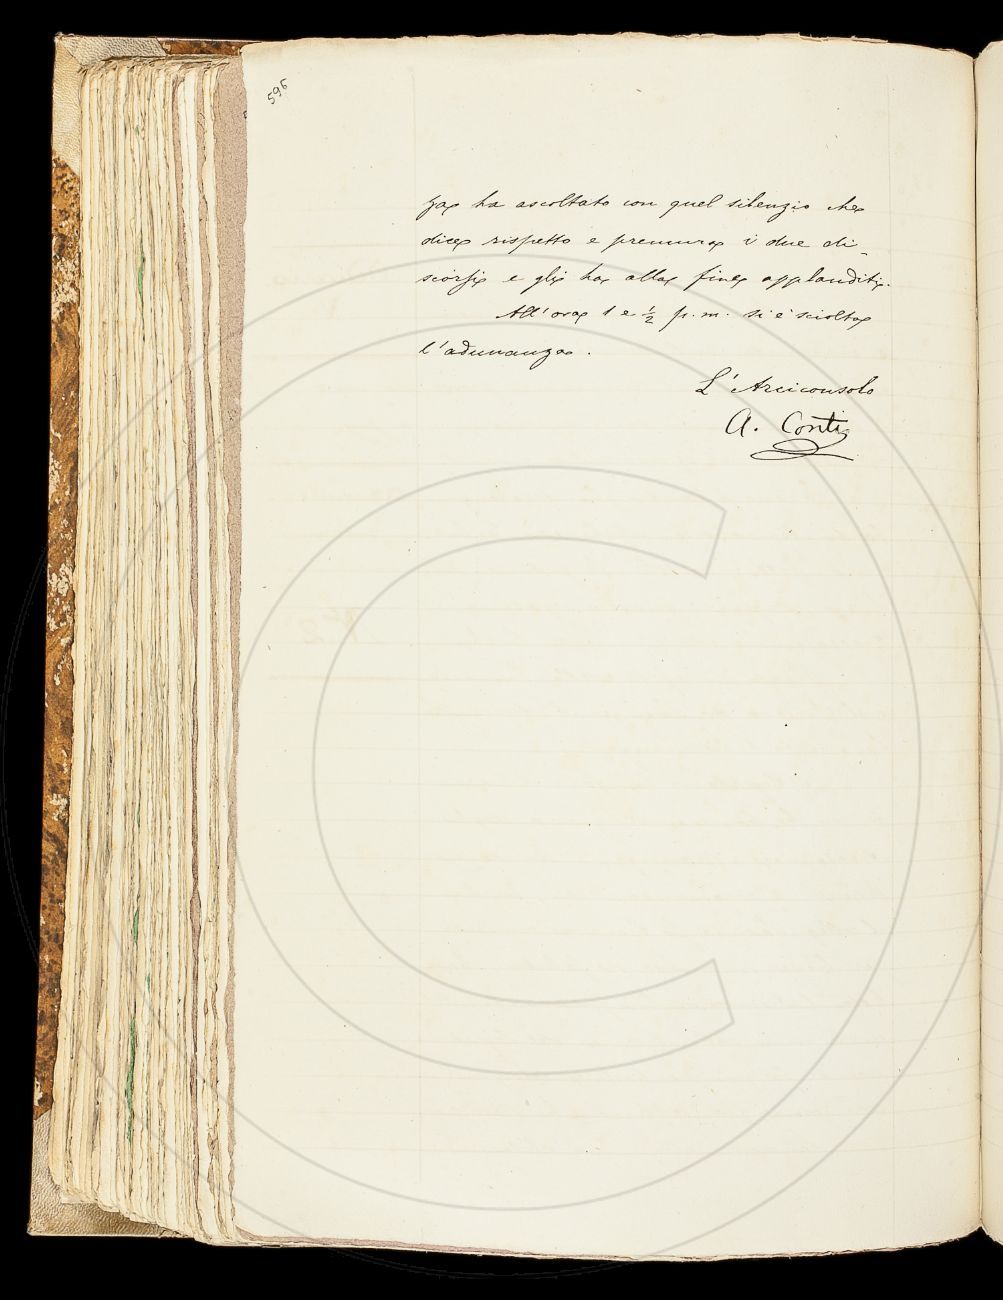 596
za ha ascoltato con quel silenzio che
dice rispetto e premura i due di
scorsi e gli ha alla fine applauditi.
All'ora 1 e ½ p. m. si è sciolta
l'adunanza.
L'Arciconsolo
A. Conti